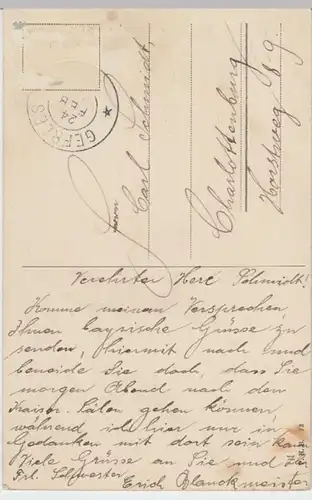 GEFREES
24
Herrn
Carl Schmidt,
Charlottenburg
Horstweg 8-9.
Verehrter Herr Schmidt!
Komme meinem Versprechen,
Ihnen bayrische Grüsse zu
senden, hiermit nach und
beneide Sie doch, dass Sie
morgen Abend nach den
Kaiser-Sälen gehen können,
während ich hier nur in
Gedanken mit dort sein kann
Viele Grüsse an Sie und
Frl. Schwester
Erich Blanckmeister